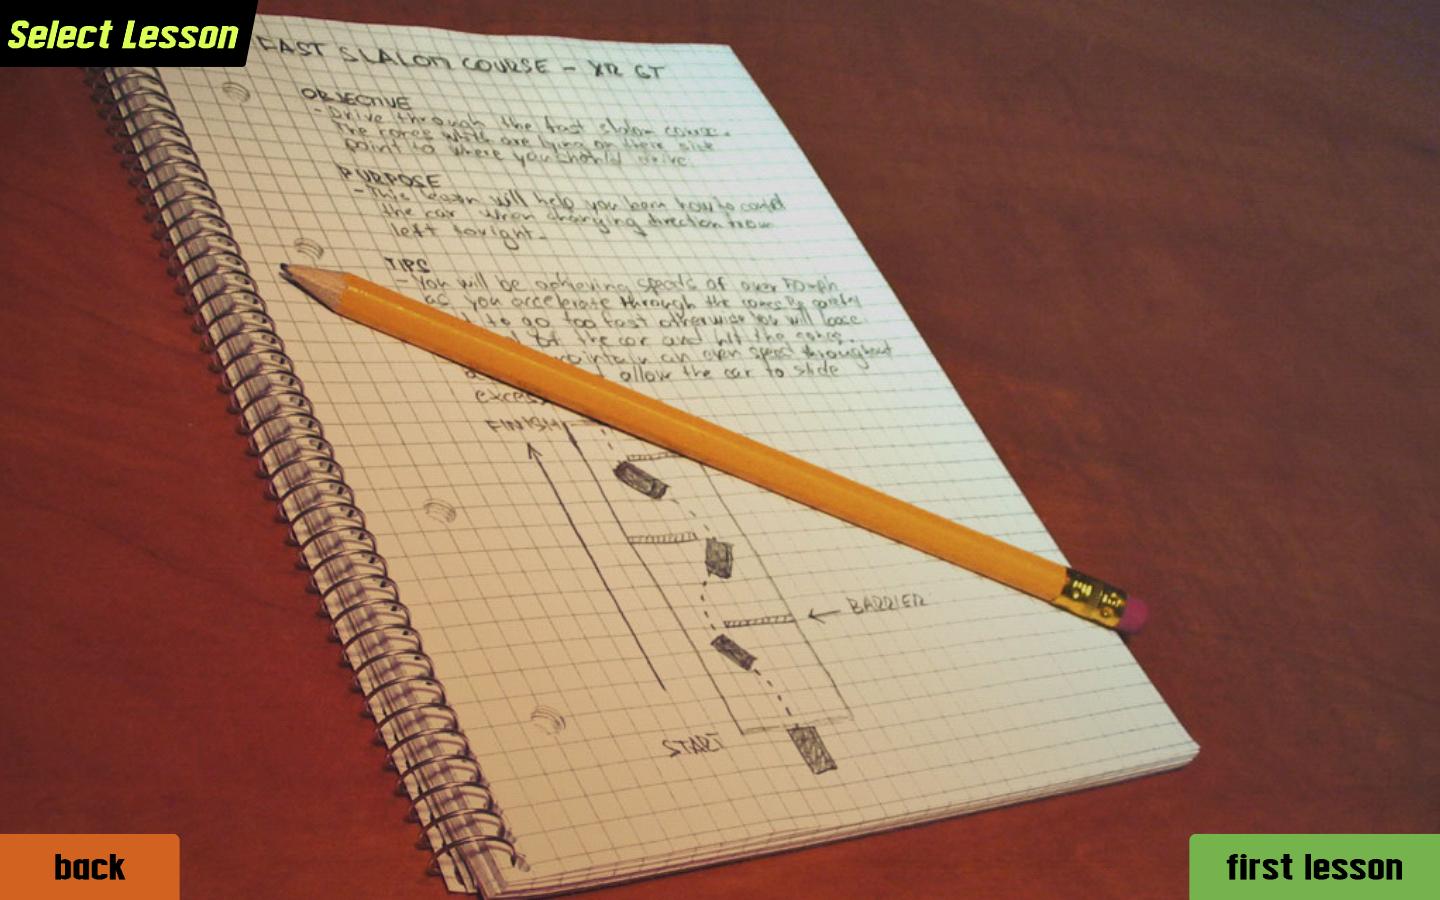 Select Lesson
FAST SLALOM COURSE - XR GT
OBJECTIVE
- Drive through the fast slalom course.
The cones which are lying on their side
point to where you should drive.
PURPOSE
- This lesson will help you learn how to control
the car when changing direction from
left to right.
TIPS
- You will be achieving speeds of over 50mph
as you accelerate through the cones. Be careful
to go too fast otherwise you will loose
of the car and hit the cones.
maintain an even speed throughout
allow the car to slide
FINISH
BARRIER
START
back
first lesson